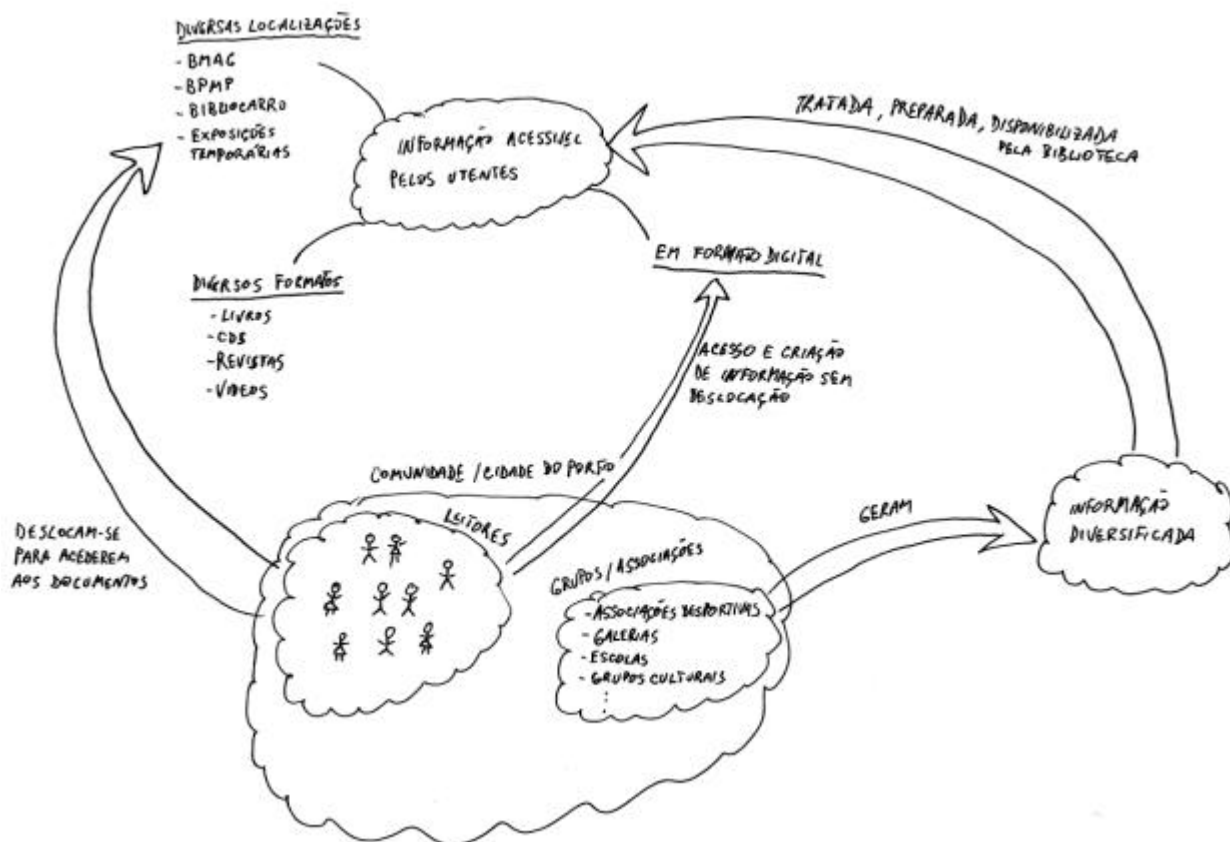 DIVERSAS LOCALIZAÇÕES
- BMAG
- BPMP
- BIBLIOCARRO
- EXPOSIÇÕES
TEMPORÁRIAS
INFORMAÇÃO ACESSIVEL
PELOS UTENTES
TRATADA, PREPARADA, DISPONIBILIZADA
PELA BIBLIOTECA
DIVERSOS FORMATOS
- LIVROS
- CDS
- REVISTAS
- VIDEOS
EM FORMATO DIGITAL
ACESSO E CRIAÇÃO
DE INFORMAÇÃO SEM
DESLOCAÇÃO
COMUNIDADE / CIDADE DO PORTO
LEITORES
DESLOCAM-SE
PARA ACEDEREM
AOS DOCUMENTOS
GRUPOS / ASSOCIAÇÕES
- ASSOCIAÇÕES DESPORTIVAS
- GALERIAS
- ESCOLAS
- GRUPOS CULTURAIS
GERAM
INFORMAÇÃO
DIVERSIFICADA